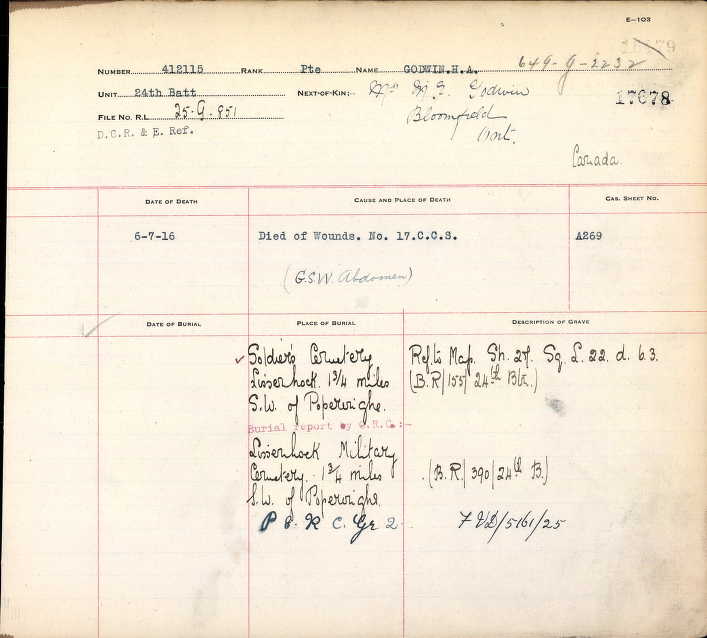 E—103
NUMBER 412115 RANK Pte NAME GODWIN.H.A. 649-G-2232
UNIT 24th Batt NEXT-OF-KIN: Godwin 17678
FILE No. R.L. 25-G-951 Bloomfield
D.C.R. & E. Ref. Ont.
Canada
DATE OF DEATH CAUSE AND PLACE OF DEATH CAS. SHEET No.
6-7-16 Died of Wounds. No. 17.C.C.S. A269
(G.S.W. Abdomen)
DATE OF BURIAL PLACE OF BURIAL DESCRIPTION OF GRAVE
Soldiers Cemetery Ref. to Map. Sh. 27. Sq. L. 22. d. 6.3.
Lissenhoek. 1 3/4 miles (B.R/155/24th Btn.)
S.W. of Poperinghe.
Burial report by G.R.C.:-
Lissenhoek Military
Cemetery. 1 3/4 miles (B.R/390/24th B.)
S.W. of Poperinghe.
C. Gr 2 /5161/25